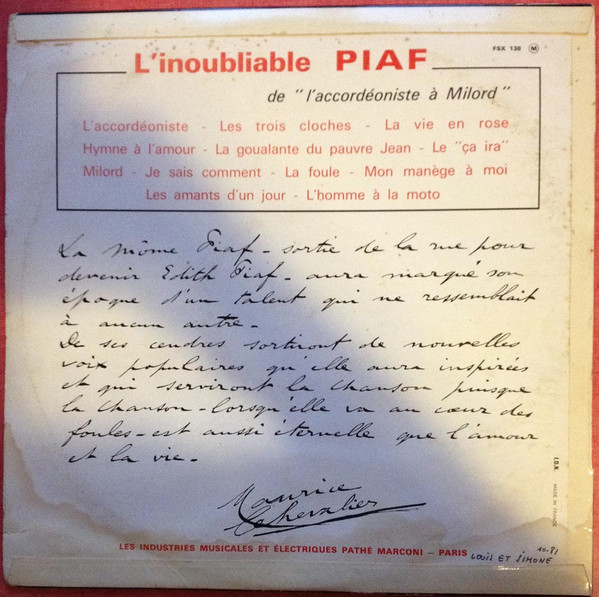 FSX 130 M
L'inoubliable PIAF
de "l'accordéoniste à Milord"
L'accordéoniste - Les trois cloches - La vie en rose
Hymne à l'amour - La goualante du pauvre Jean - Le "ça ira"
Milord - Je sais comment - La foule - Mon manège à moi
Les amants d'un jour - L'homme à la moto
La môme Piaf - sortie de la rue pour
devenir Edith Piaf - aura marqué son
époque d'un talent qui ne ressemblait
à aucun autre -
De ses cendres sortiront de nouvelles
voix populaires qu'elle aura inspirées
et qui serviront la chanson puisque
la chanson - lorsqu'elle va au cœur des
foules - est aussi éternelle que l'amour
et la vie -
Maurice
Chevalier
LES INDUSTRIES MUSICALES ET ÉLECTRIQUES PATHÉ MARCONI - PARIS
LOUIS ET SIMONE
10.81
I.D.N. MADE IN FRANCE